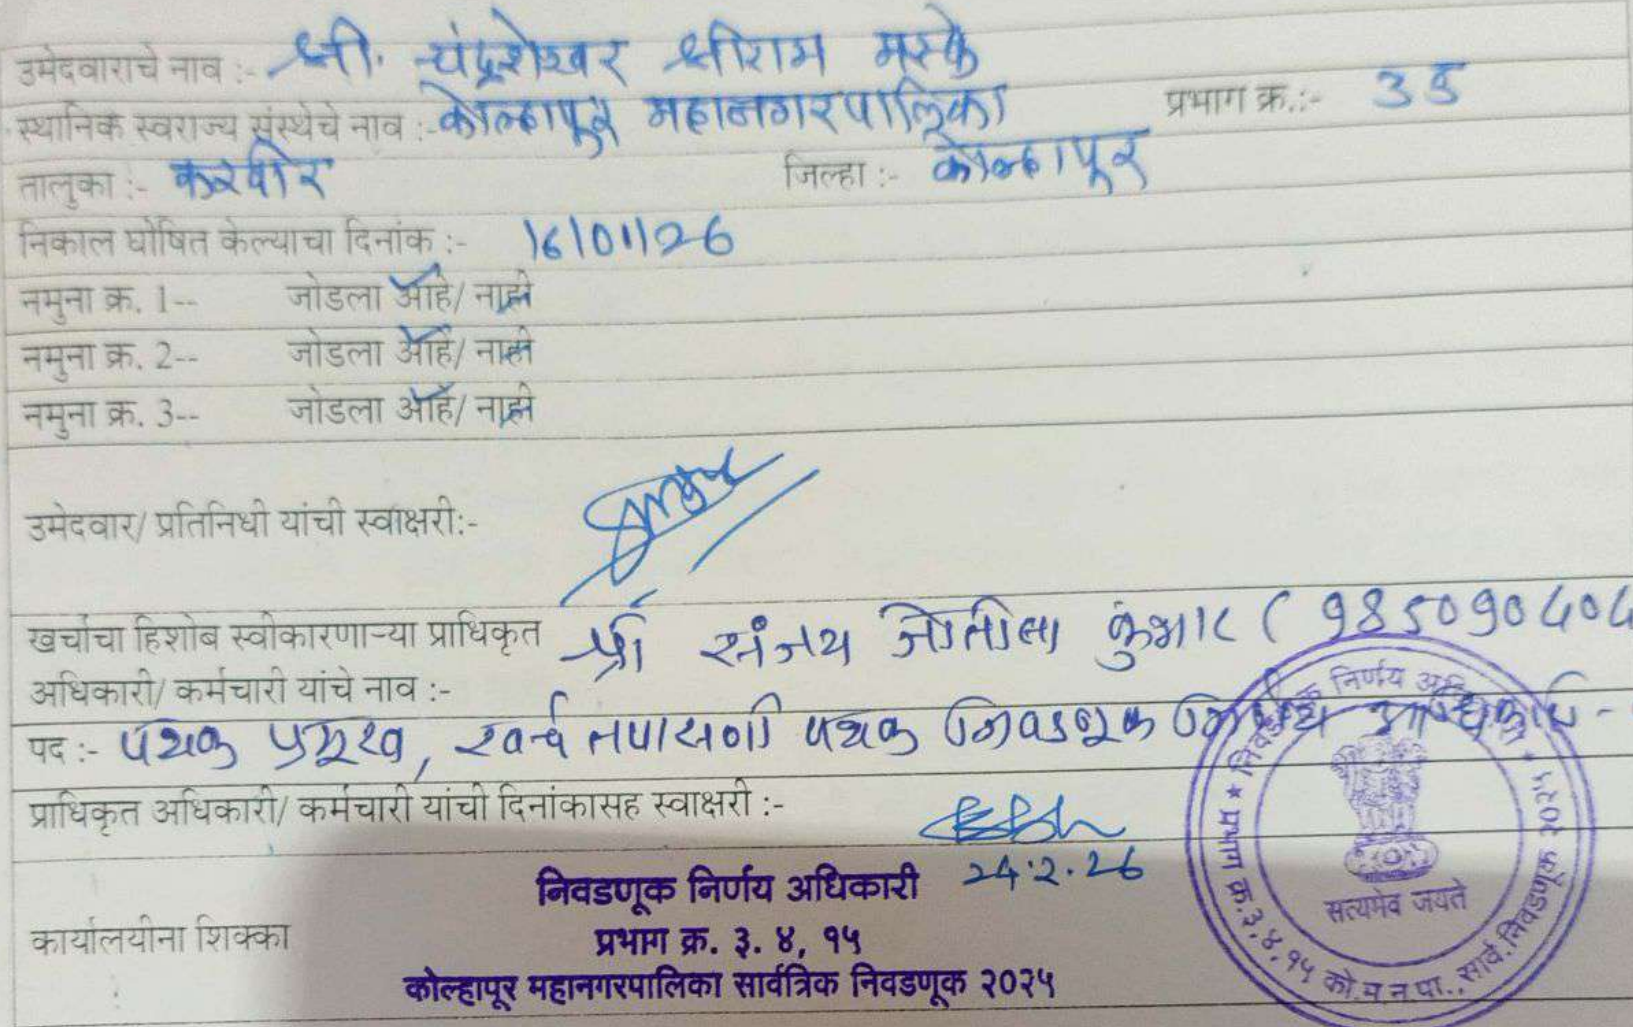 उमेदवाराचे नाव :- श्री. चंद्रशेखर श्रीराम मस्के
स्थानिक स्वराज्य संस्थेचे नाव :- कोल्हापूर महानगरपालिका प्रभाग क्र.:- 3ड
तालुका :- करवीर जिल्हा :- कोल्हापूर
निकाल घोषित केल्याचा दिनांक :- 16/01/26
नमुना क्र. 1-- जोडला आहे/ नाही
नमुना क्र. 2-- जोडला आहे/ नाही
नमुना क्र. 3-- जोडला आहे/ नाही
उमेदवार/ प्रतिनिधी यांची स्वाक्षरी:-
खर्चाचा हिशोब स्वीकारणाऱ्या प्राधिकृत श्री संजय कुंभार
अधिकारी/ कर्मचारी यांचे नाव :-
पद :- पथक प्रमुख, खर्च तपासणी पथक निवडणूक निर्णय अधिकारी -
प्राधिकृत अधिकारी/ कर्मचारी यांची दिनांकासह स्वाक्षरी :-
24.2.26
निवडणूक निर्णय अधिकारी
कार्यालयीना शिक्का प्रभाग क्र. ३. ४, १५
कोल्हापूर महानगरपालिका सार्वत्रिक निवडणूक २०२५
सत्यमेव जयते
प्रभाग क्र.३,४,१५ को.म.न.पा., सार्व.निवडणूक २०२५